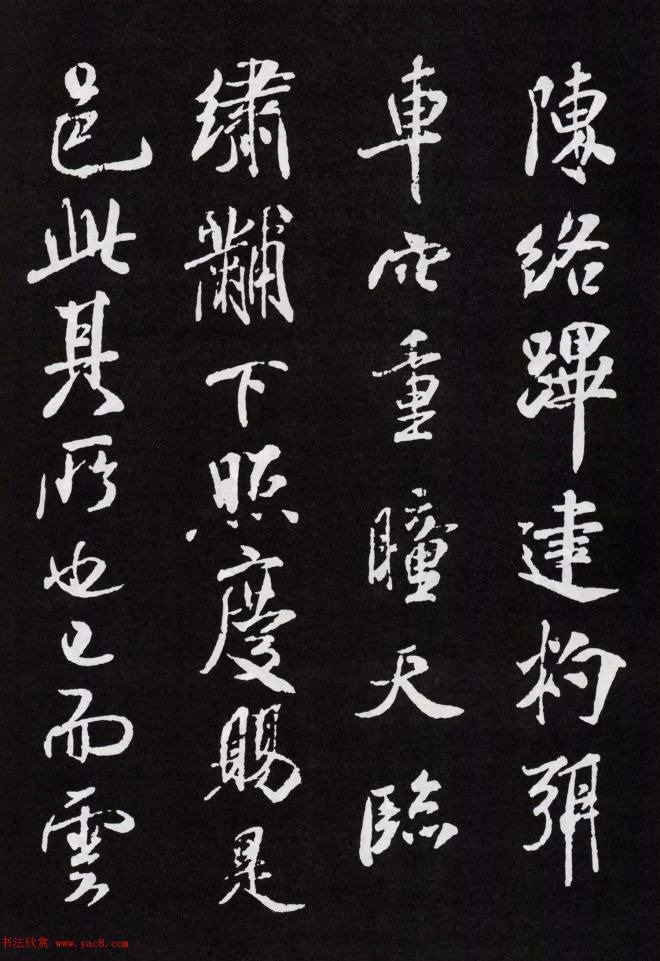 陳絡蹕建杓弭
車重瞳天臨
繡黼下照慶賜是
邑此其所也已而雲
书法欣赏 www.yac8.com